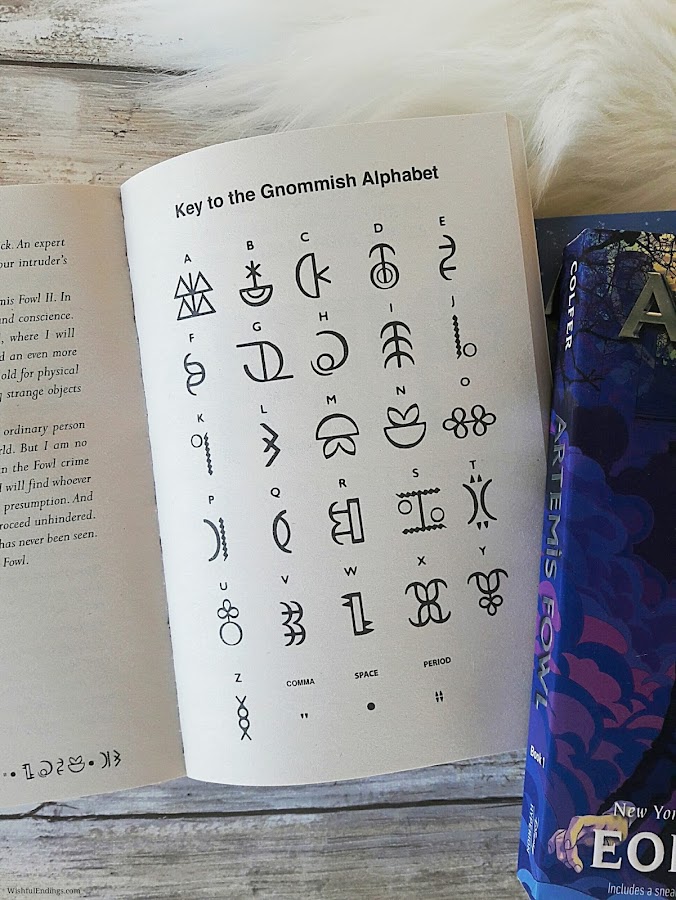 ck. An expert
our intruder's
mis Fowl II. In
und conscience.
, where I will
d an even more
old for physical
strange objects
ordinary person
rld. But I am no
n the Fowl crime
I will find whoever
presumption. And
roceed unhindered.
has never been seen.
Fowl.
Key to the Gnommish Alphabet
A B C D E
F G H I J
K L M N O
P Q R S T
U V W X Y
Z COMMA SPACE PERIOD
COLFER
ARTEMIS FOWL
Book 1
DISNEY HYPERION
A
New Yor
EOI
Includes a snea
WishfulEndings.com